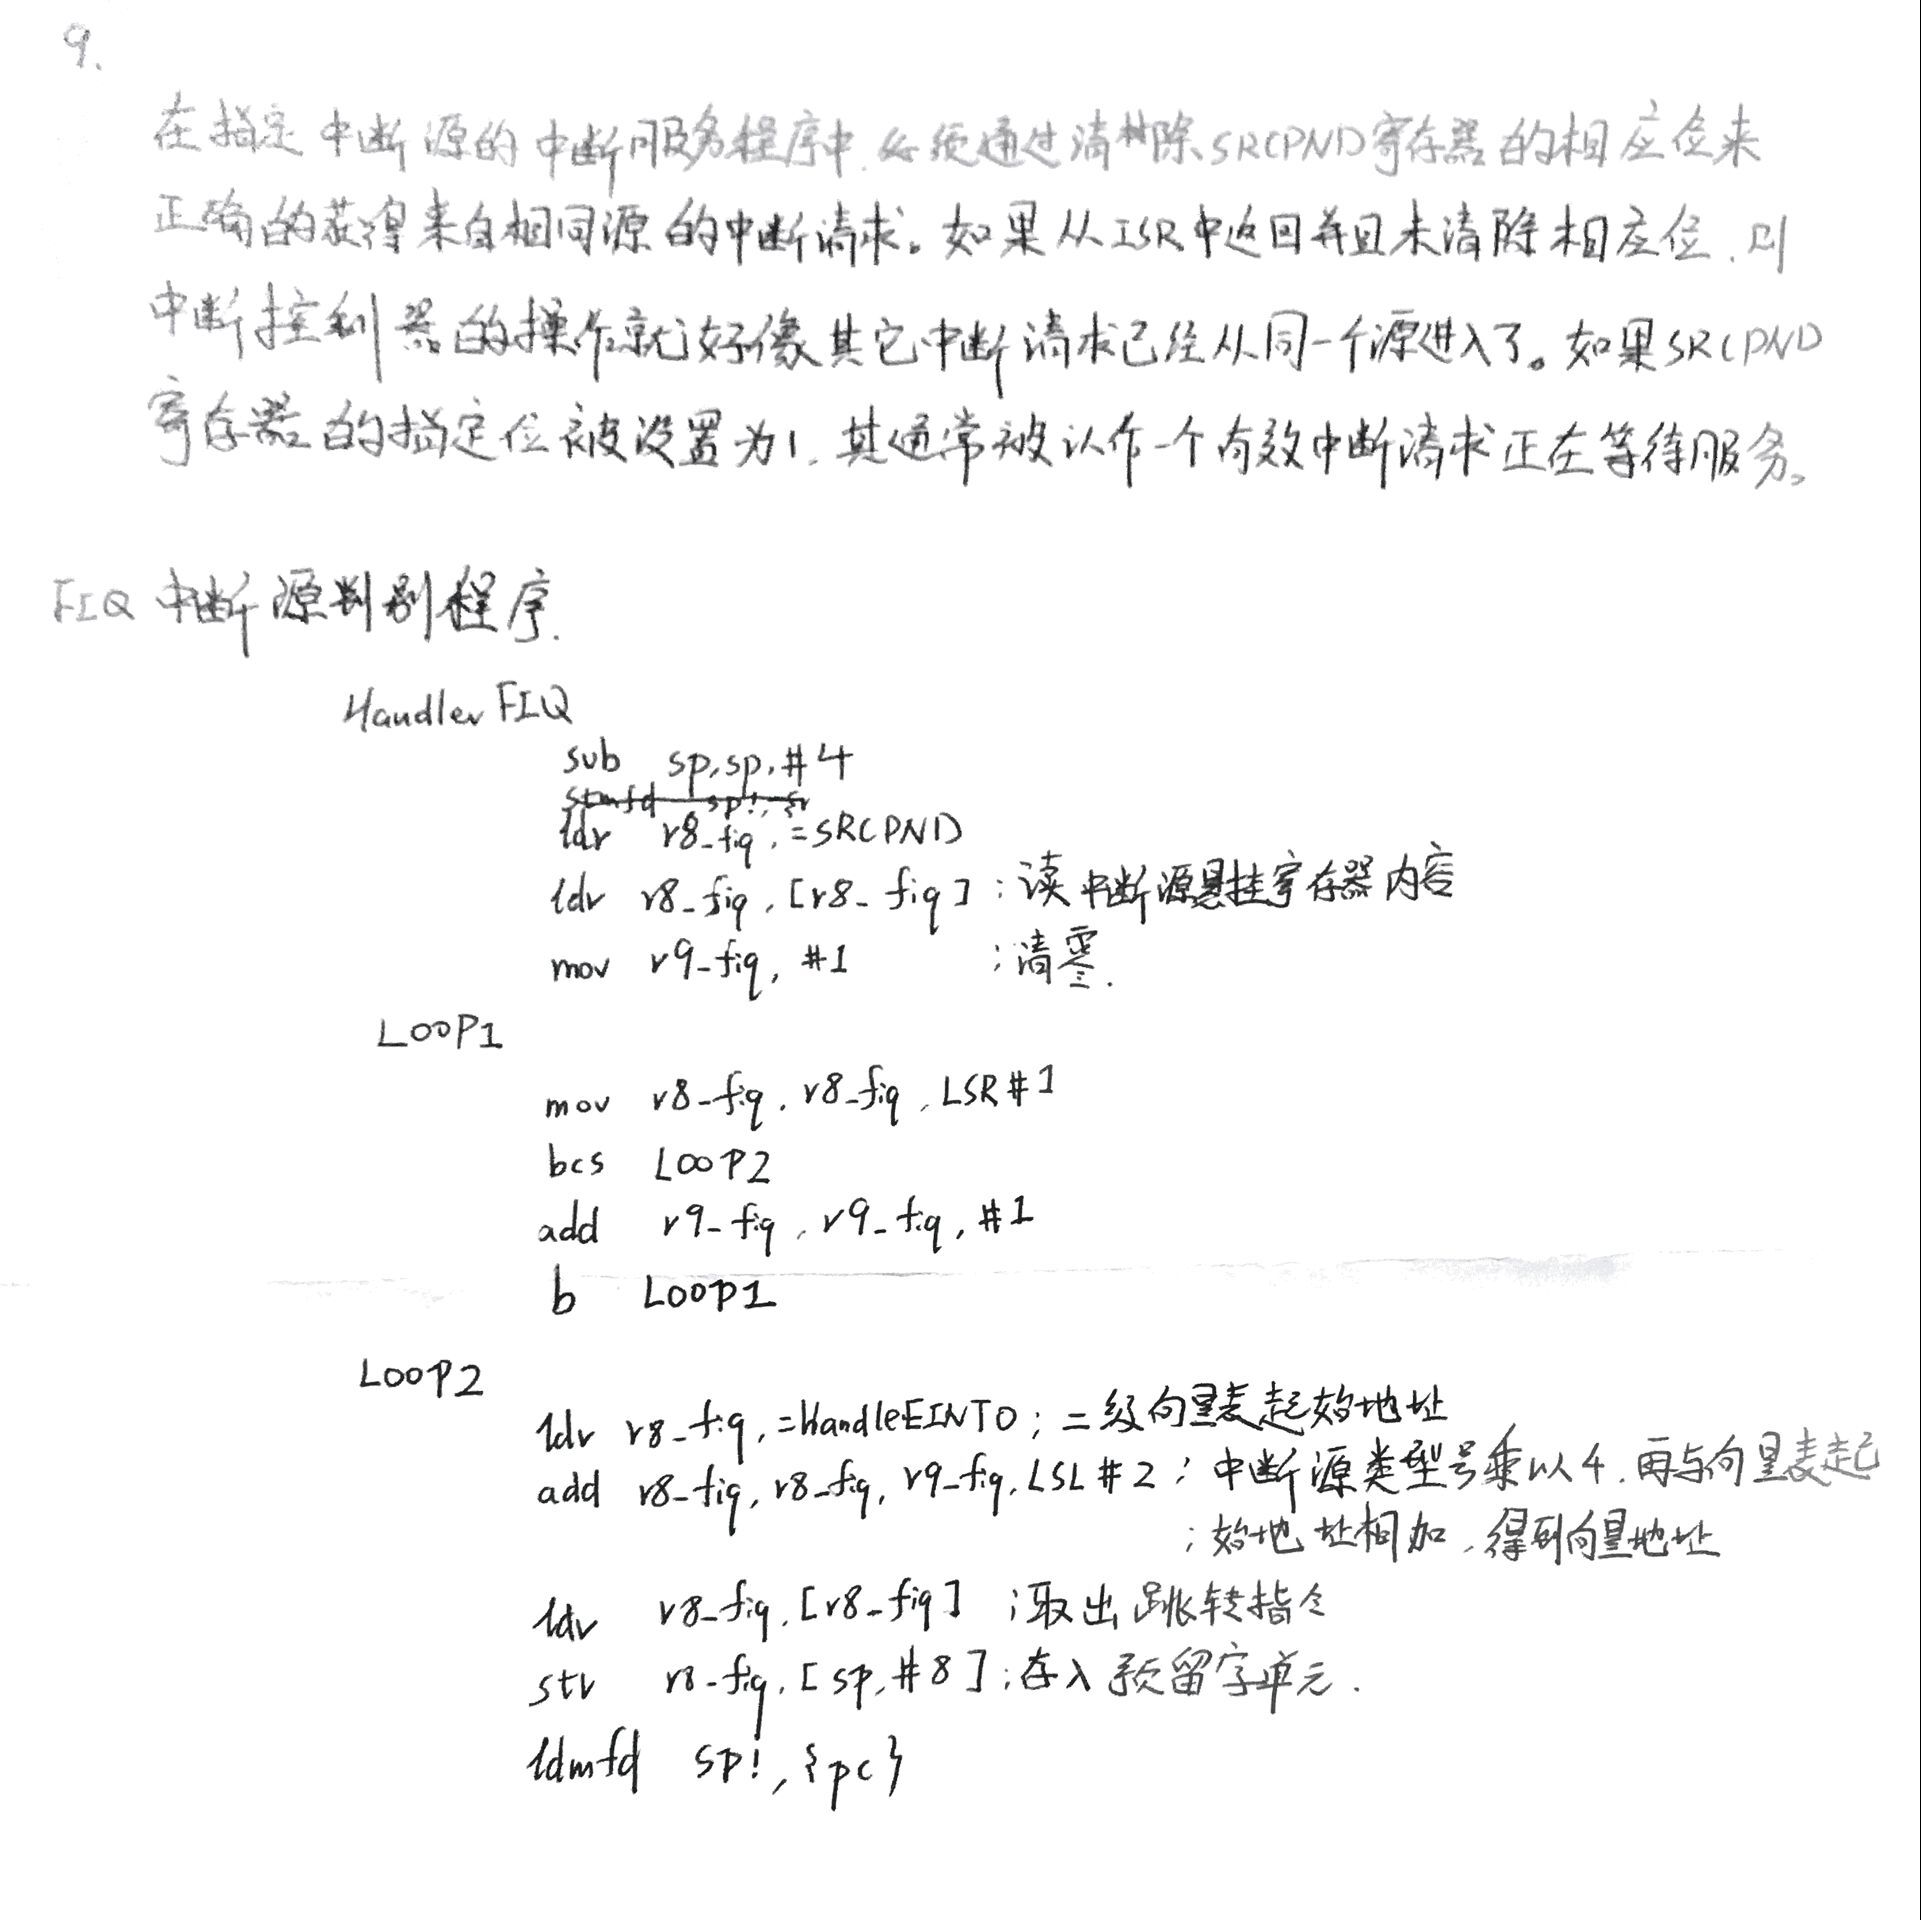 9.
在指定中断源的中断服务程序中,必须通过清除SRCPND寄存器的相应位来
正确的获得来自相同源的中断请求。如果从ISR中返回并且未清除相应位,则
中断控制器的操作就好像其它中断请求已经从同一个源进入了。如果SRCPND
寄存器的指定位被设置为1,其通常被认作一个有效中断请求正在等待服务。
FIQ中断源判别程序.
HandlerFIQ
sub sp,sp,#4
stmfd sp!,{r
ldr r8_fiq,=SRCPND
ldr r8_fiq,[r8_fiq];读中断源悬挂寄存器内容
mov r9_fiq,#1 ;清零.
LOOP1
mov r8_fiq,r8_fiq,LSR#1
bcs LOOP2
add r9_fiq,r9_fiq,#1
b LOOP1
LOOP2
ldr r8_fiq,=HandleEINT0;二级向量表起始地址
add r8_fiq,r8_fiq,r9_fiq,LSL#2;中断源类型号乘以4,再与向量表起
;始地址相加,得到向量地址
ldr r8_fiq,[r8_fiq] ;取出跳转指令
str r8_fiq,[sp,#8];存入预留字单元.
ldmfd sp!,{pc}